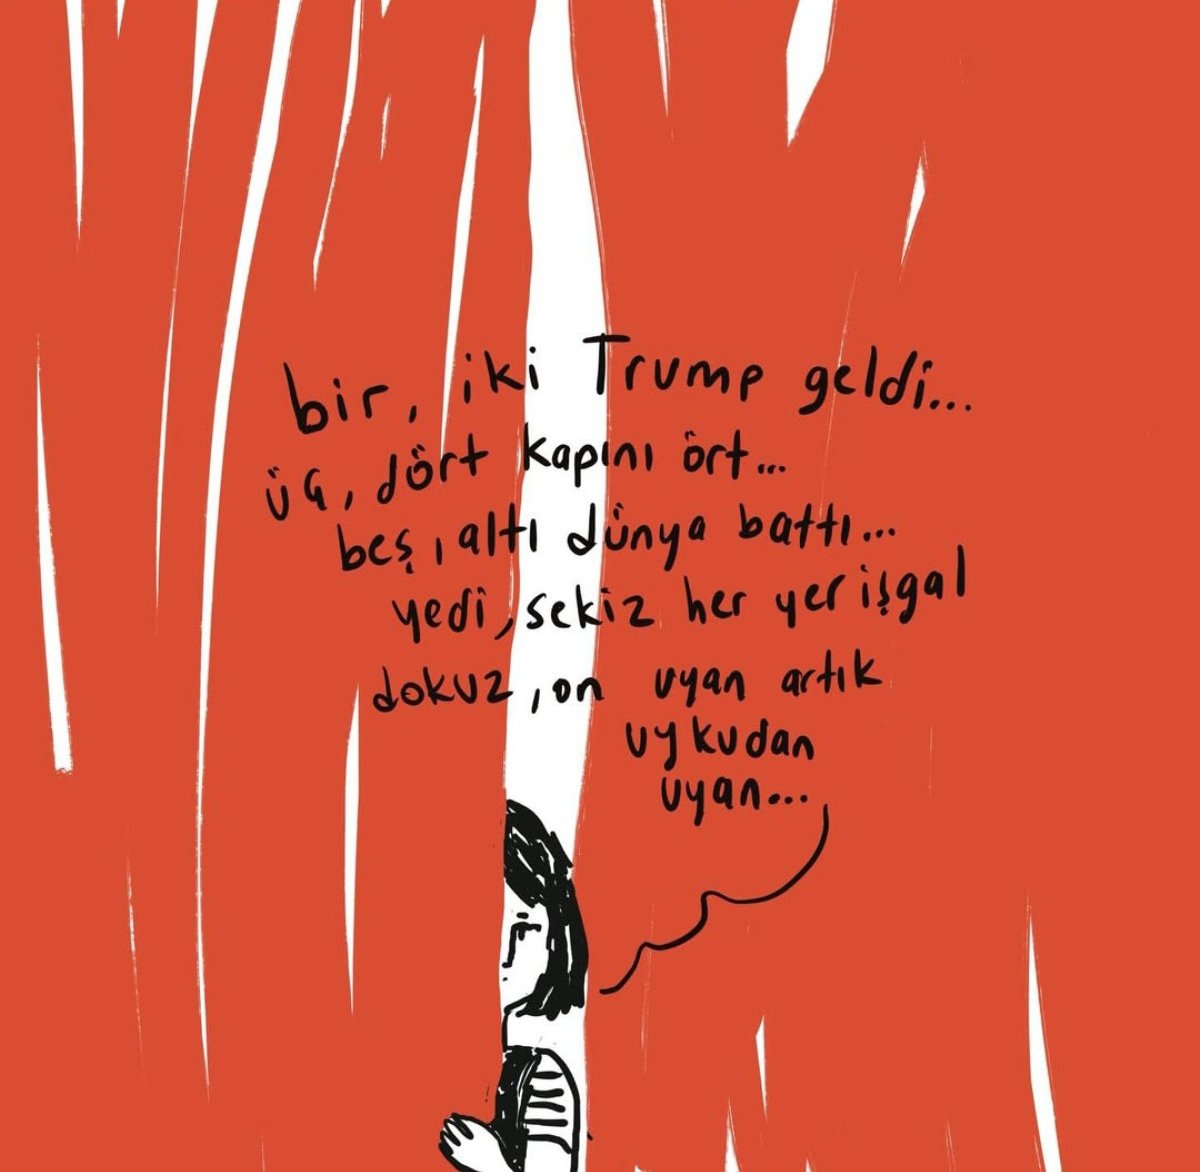 bir, iki Trump geldi...
üç, dört kapını ört...
beş, altı dünya battı...
yedi, sekiz her yer işgal
dokuz, on uyan artık
uykudan
uyan...